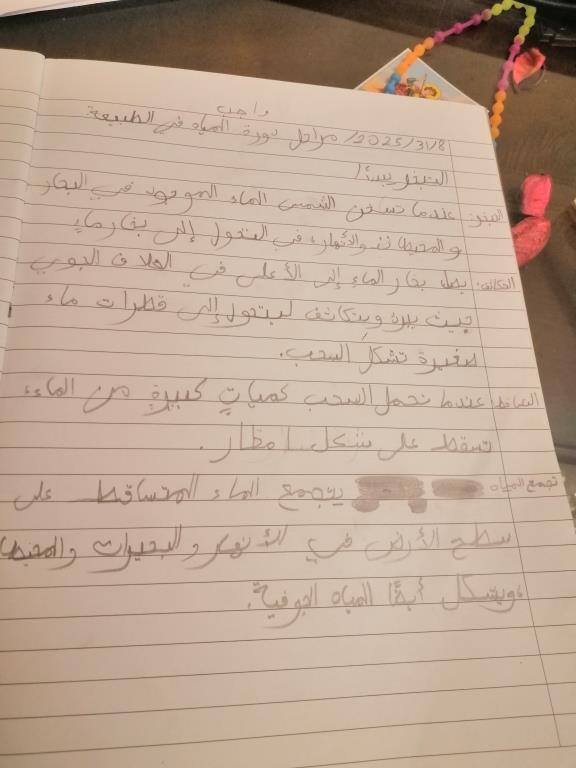 واجب
2025/3/8/ مراحل دورة المياه في الطبيعة
التبخر يبدأ/
التبخر: عندما تسخن الشمس الماء الموجود في البحار
والمحيطات والأنهار، في التحول إلى بخار ماء
التكاثف: يصل بخار الماء إلى الأعلى في الغلاف الجوي
حيث يبرد ويتكاثف ليتحول إلى قطرات ماء
صغيرة تشكل السحب.
التساقط: عندما تحمل السحب كمياتٍ كبيرةٍ من الماء،
تسقط على شكل امطار.
تجمع المياه يتجمع الماء المتساقط على
سطح الأرض في الأنهار والبحيرات والمحيطا
ويتشكل أيضًا المياه الجوفية.